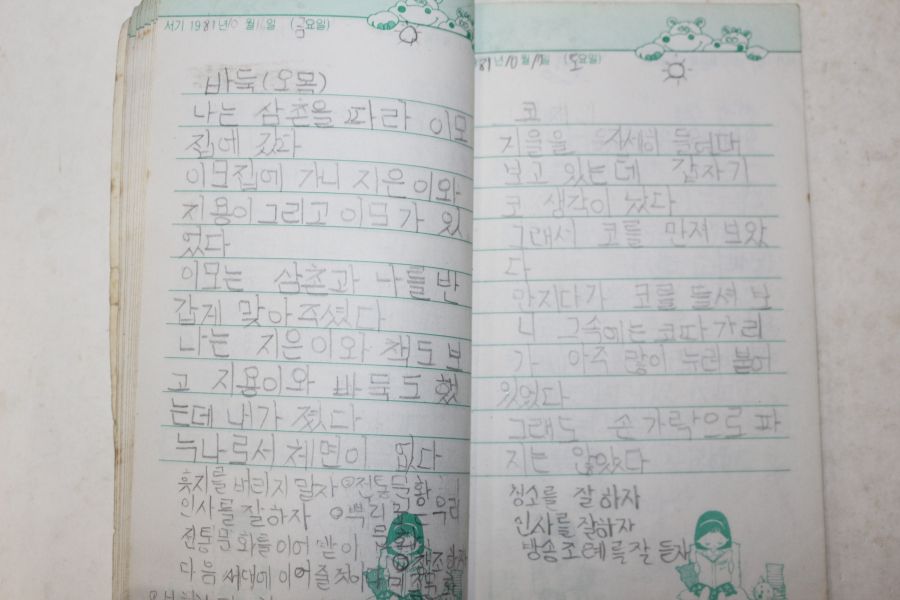 서기 1981년 10월 16일 (금요일)
바둑(오목)
나는 삼촌을 따라 이모
집에 갔다
이모집에 가니 지은이와
지용이그리고 이모가 있
었다
이모는 삼촌과 나를 반
갑게 맞아주셨다
나는 지은이와 책도 보
고 지용이와 바둑도 했
는데 내가 졌다
누나로서 체면이 없다
휴지를 버리지 말자 ⊙전통문화
인사를 잘하자 우리
전통문화를 이어 받아
다음 세대에 이어줄것이다
81년 10월 17일 (토요일)
코
거울을 자세히 들여다
보고 있는데 갑자기
코 생각이 났다
그래서 코를 만져 보았
다
만지다가 코를 들셔 보
니 그속에는 코따가리
가 아주 많이 누러 붙어
있었다
그래도 손가락으로 파
지는 않았다
청소를 잘 하자
인사를 잘하자
방송조예를 잘 듣자